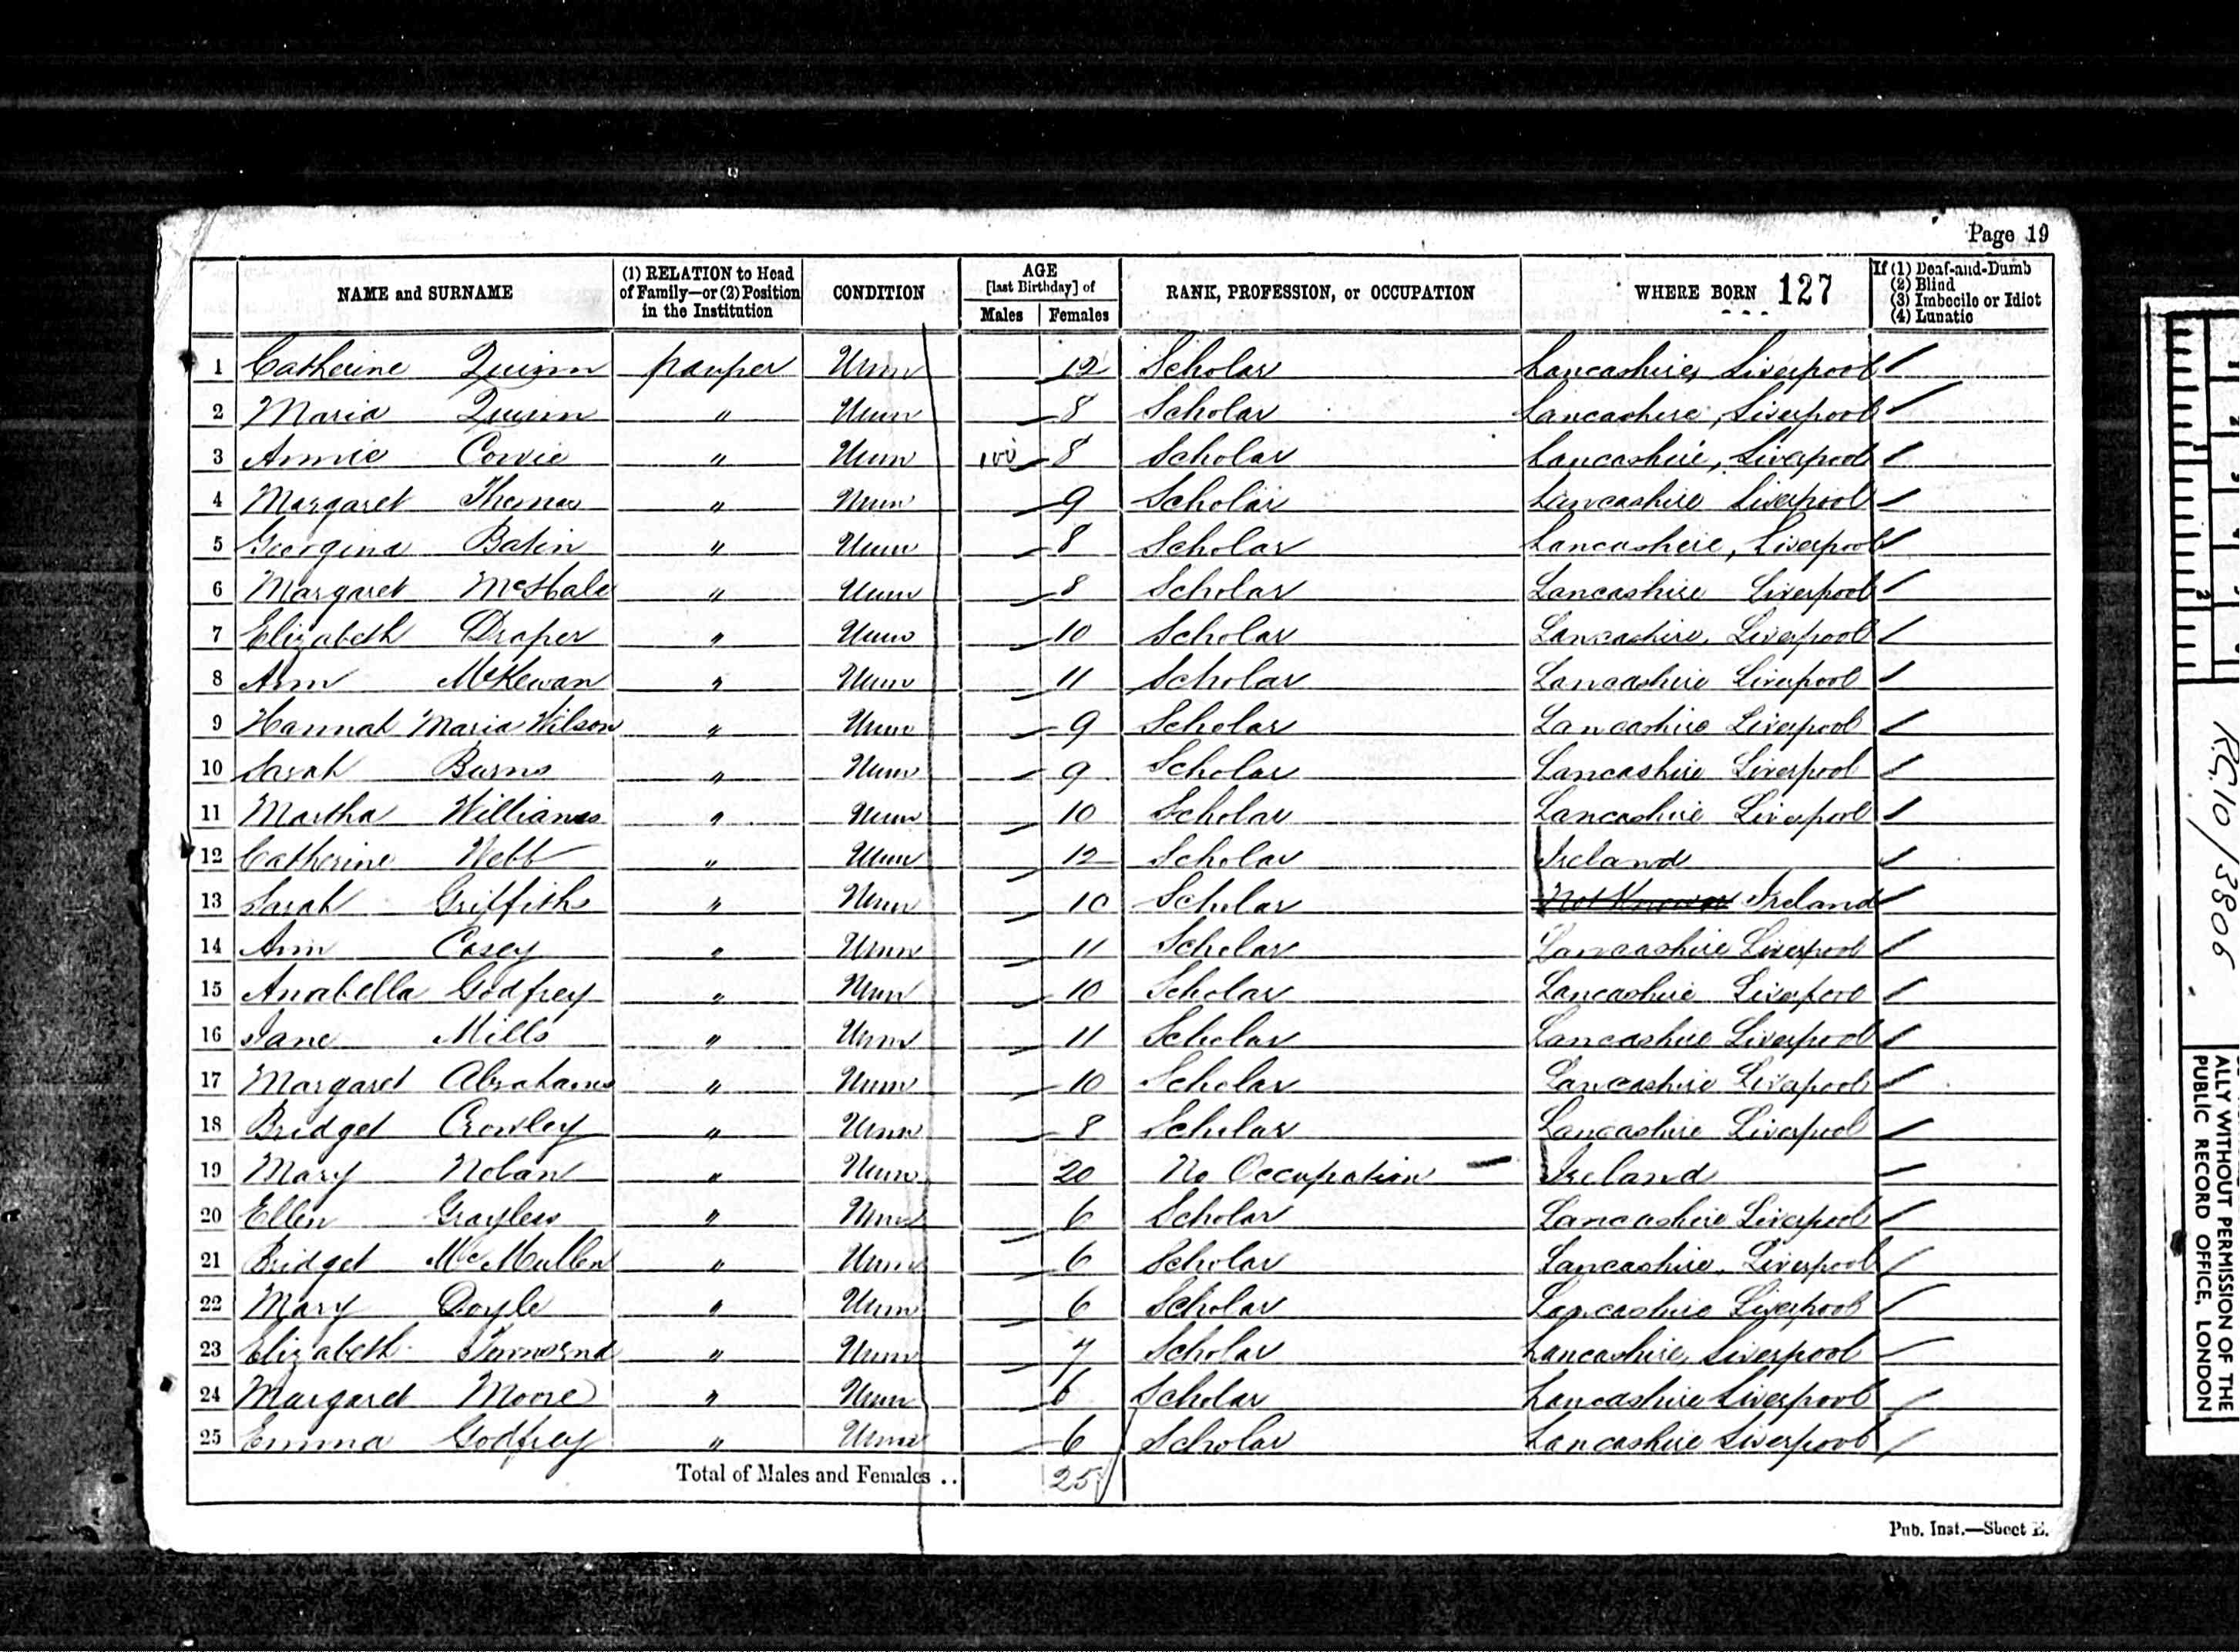 Page 19
NAME and SURNAME (1) RELATION to Head of Family—or (2) Position in the Institution CONDITION AGE [last Birthday] of Males Females RANK, PROFESSION, or OCCUPATION WHERE BORN 127 If (1) Deaf-and-Dumb (2) Blind (3) Imbecile or Idiot (4) Lunatic
1 Catherine Quinn pauper Unm 12 Scholar Lancashire, Liverpool
2 Maria Quinn " Unm 8 Scholar Lancashire, Liverpool
3 Annie Cowie " Unm 8 Scholar Lancashire, Liverpool
4 Margaret Thomas " Unm 9 Scholar Lancashire Liverpool
5 Georgina Batin " Unm 8 Scholar Lancashire, Liverpool
6 Margaret McHale " Unm 8 Scholar Lancashire Liverpool
7 Elizabeth Draper " Unm 10 Scholar Lancashire, Liverpool
8 Ann McKewan " Unm 11 Scholar Lancashire Liverpool
9 Hannah Maria Wilson " Unm 9 Scholar Lancashire Liverpool
10 Sarah Burns " Unm 9 Scholar Lancashire Liverpool
11 Martha Williams " Unm 10 Scholar Lancashire Liverpool
12 Catherine Webb " Unm 12 Scholar Ireland
13 Sarah Griffiths " Unm 10 Scholar Not Known Ireland
14 Ann Casey " Unm 11 Scholar Lancashire Liverpool
15 Anabella Godfrey " Unm 10 Scholar Lancashire Liverpool
16 Jane Mills " Unm 11 Scholar Lancashire Liverpool
17 Margaret Abrahams " Unm 10 Scholar Lancashire Liverpool
18 Bridget Crowley " Unm 8 Scholar Lancashire Liverpool
19 Mary Nolan " Unm 20 No Occupation Ireland
20 Ellen Grayless " Unm 6 Scholar Lancashire Liverpool
21 Bridget McMullen " Unm 6 Scholar Lancashire, Liverpool
22 Mary Doyle " Unm 6 Scholar Lancashire Liverpool
23 Elizabeth Townsend " Unm 7 Scholar Lancashire, Liverpool
24 Margaret Moore " Unm 6 Scholar Lancashire Liverpool
25 Emma Godfrey " Unm 6 Scholar Lancashire Liverpool
Total of Males and Females .. 25
Pub. Inst.—Sheet E.
RG.10/3806
ALLY WITHOUT PERMISSION OF THE
PUBLIC RECORD OFFICE, LONDON